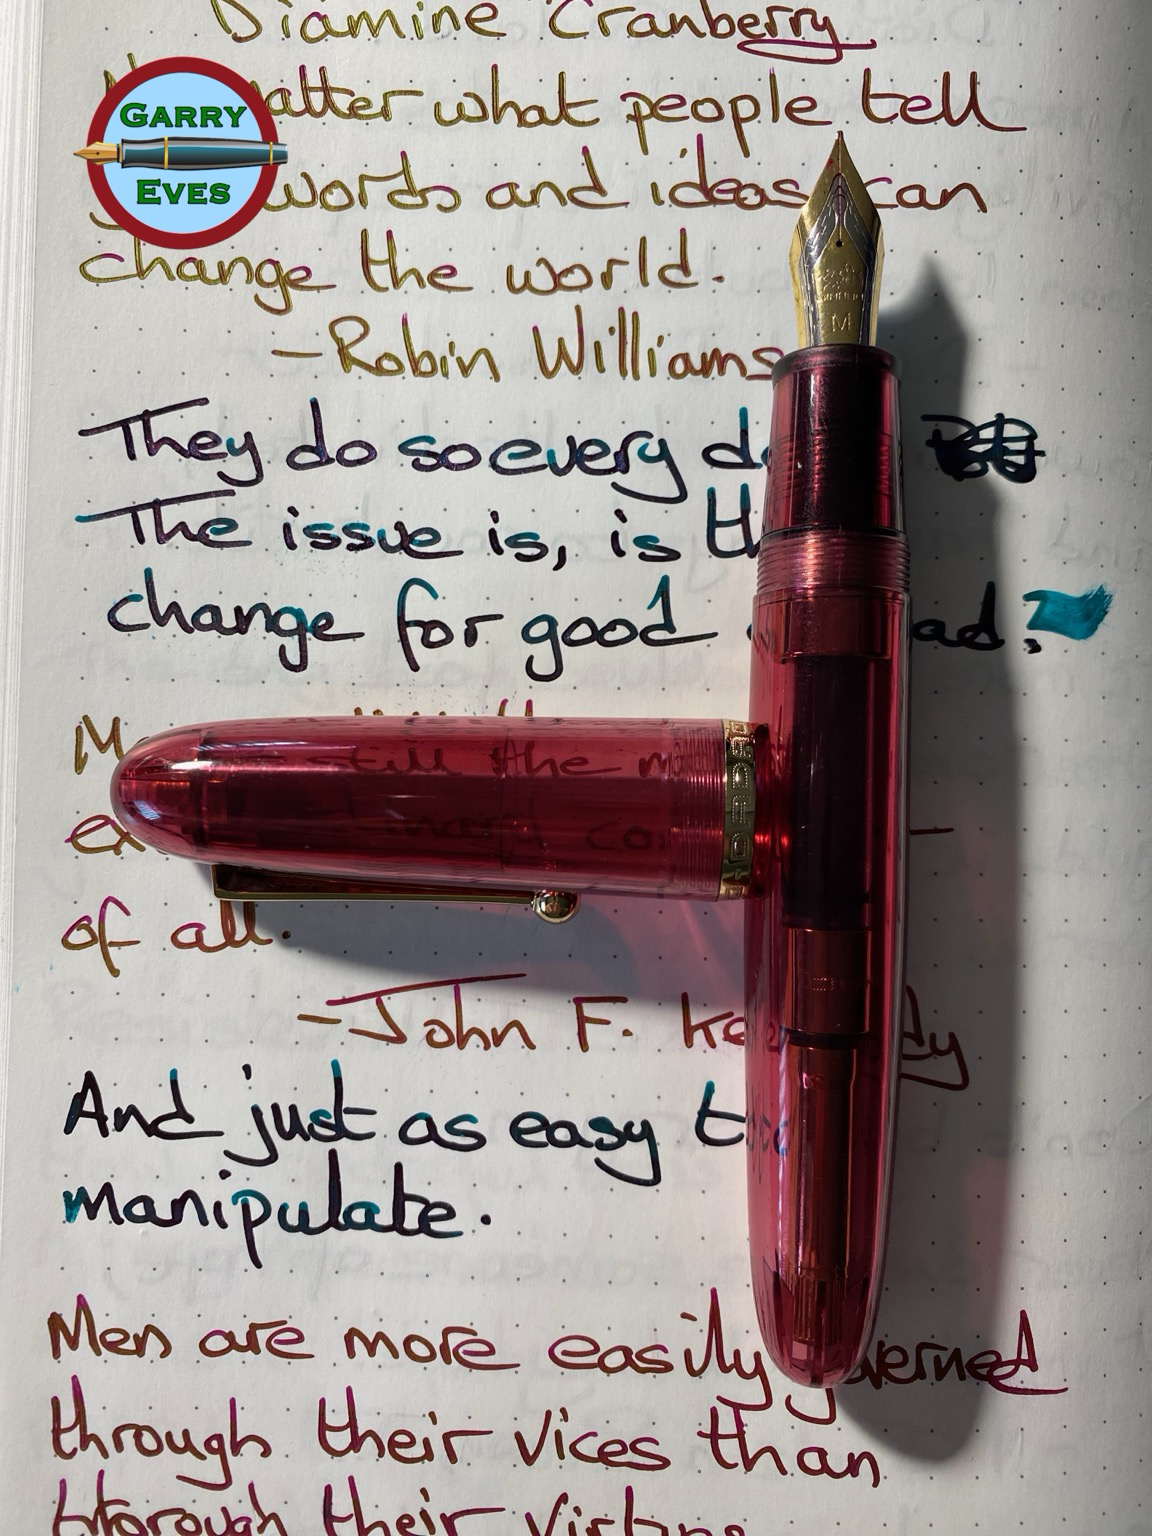 Diamine Cranberry
GARRY
EVES
matter what people tell
words and ideas can
change the world.
- Robin Williams
They do so every
The issue is, is
change for good ad?
M
still the
many
of all.
- John F. Ke dy
And just as easy to
manipulate.
Men are more easily governed
through their vices than
through their virtues
M